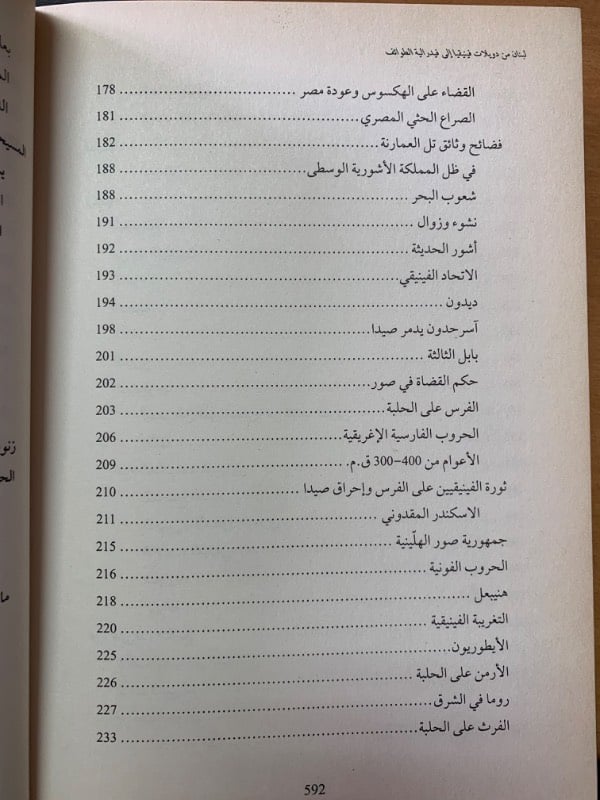 لبنان من دويلات فينيقيا إلى فيدرالية الطوائف
القضاء على الهكسوس وعودة مصر ........ 178
الصراع الحثي المصري ........ 181
فضائح وثائق تل العمارنة ........ 182
في ظل المملكة الأشورية الوسطى ........ 188
شعوب البحر ........ 188
نشوء وزوال ........ 191
أشور الحديثة ........ 192
الاتحاد الفينيقي ........ 193
ديدون ........ 194
آسرحدون يدمر صيدا ........ 198
بابل الثالثة ........ 201
حكم القضاة في صور ........ 202
الفرس على الحلبة ........ 203
الحروب الفارسية الإغريقية ........ 206
الأعوام من 400–300 ق.م. ........ 209
ثورة الفينيقيين على الفرس وإحراق صيدا ........ 210
الاسكندر المقدوني ........ 211
جمهورية صور الهلّينية ........ 215
الحروب الفونية ........ 216
هنيبعل ........ 218
التغريبة الفينيقية ........ 220
الأيطوريون ........ 225
الأرمن على الحلبة ........ 226
روما في الشرق ........ 227
الفرث على الحلبة ........ 233
592